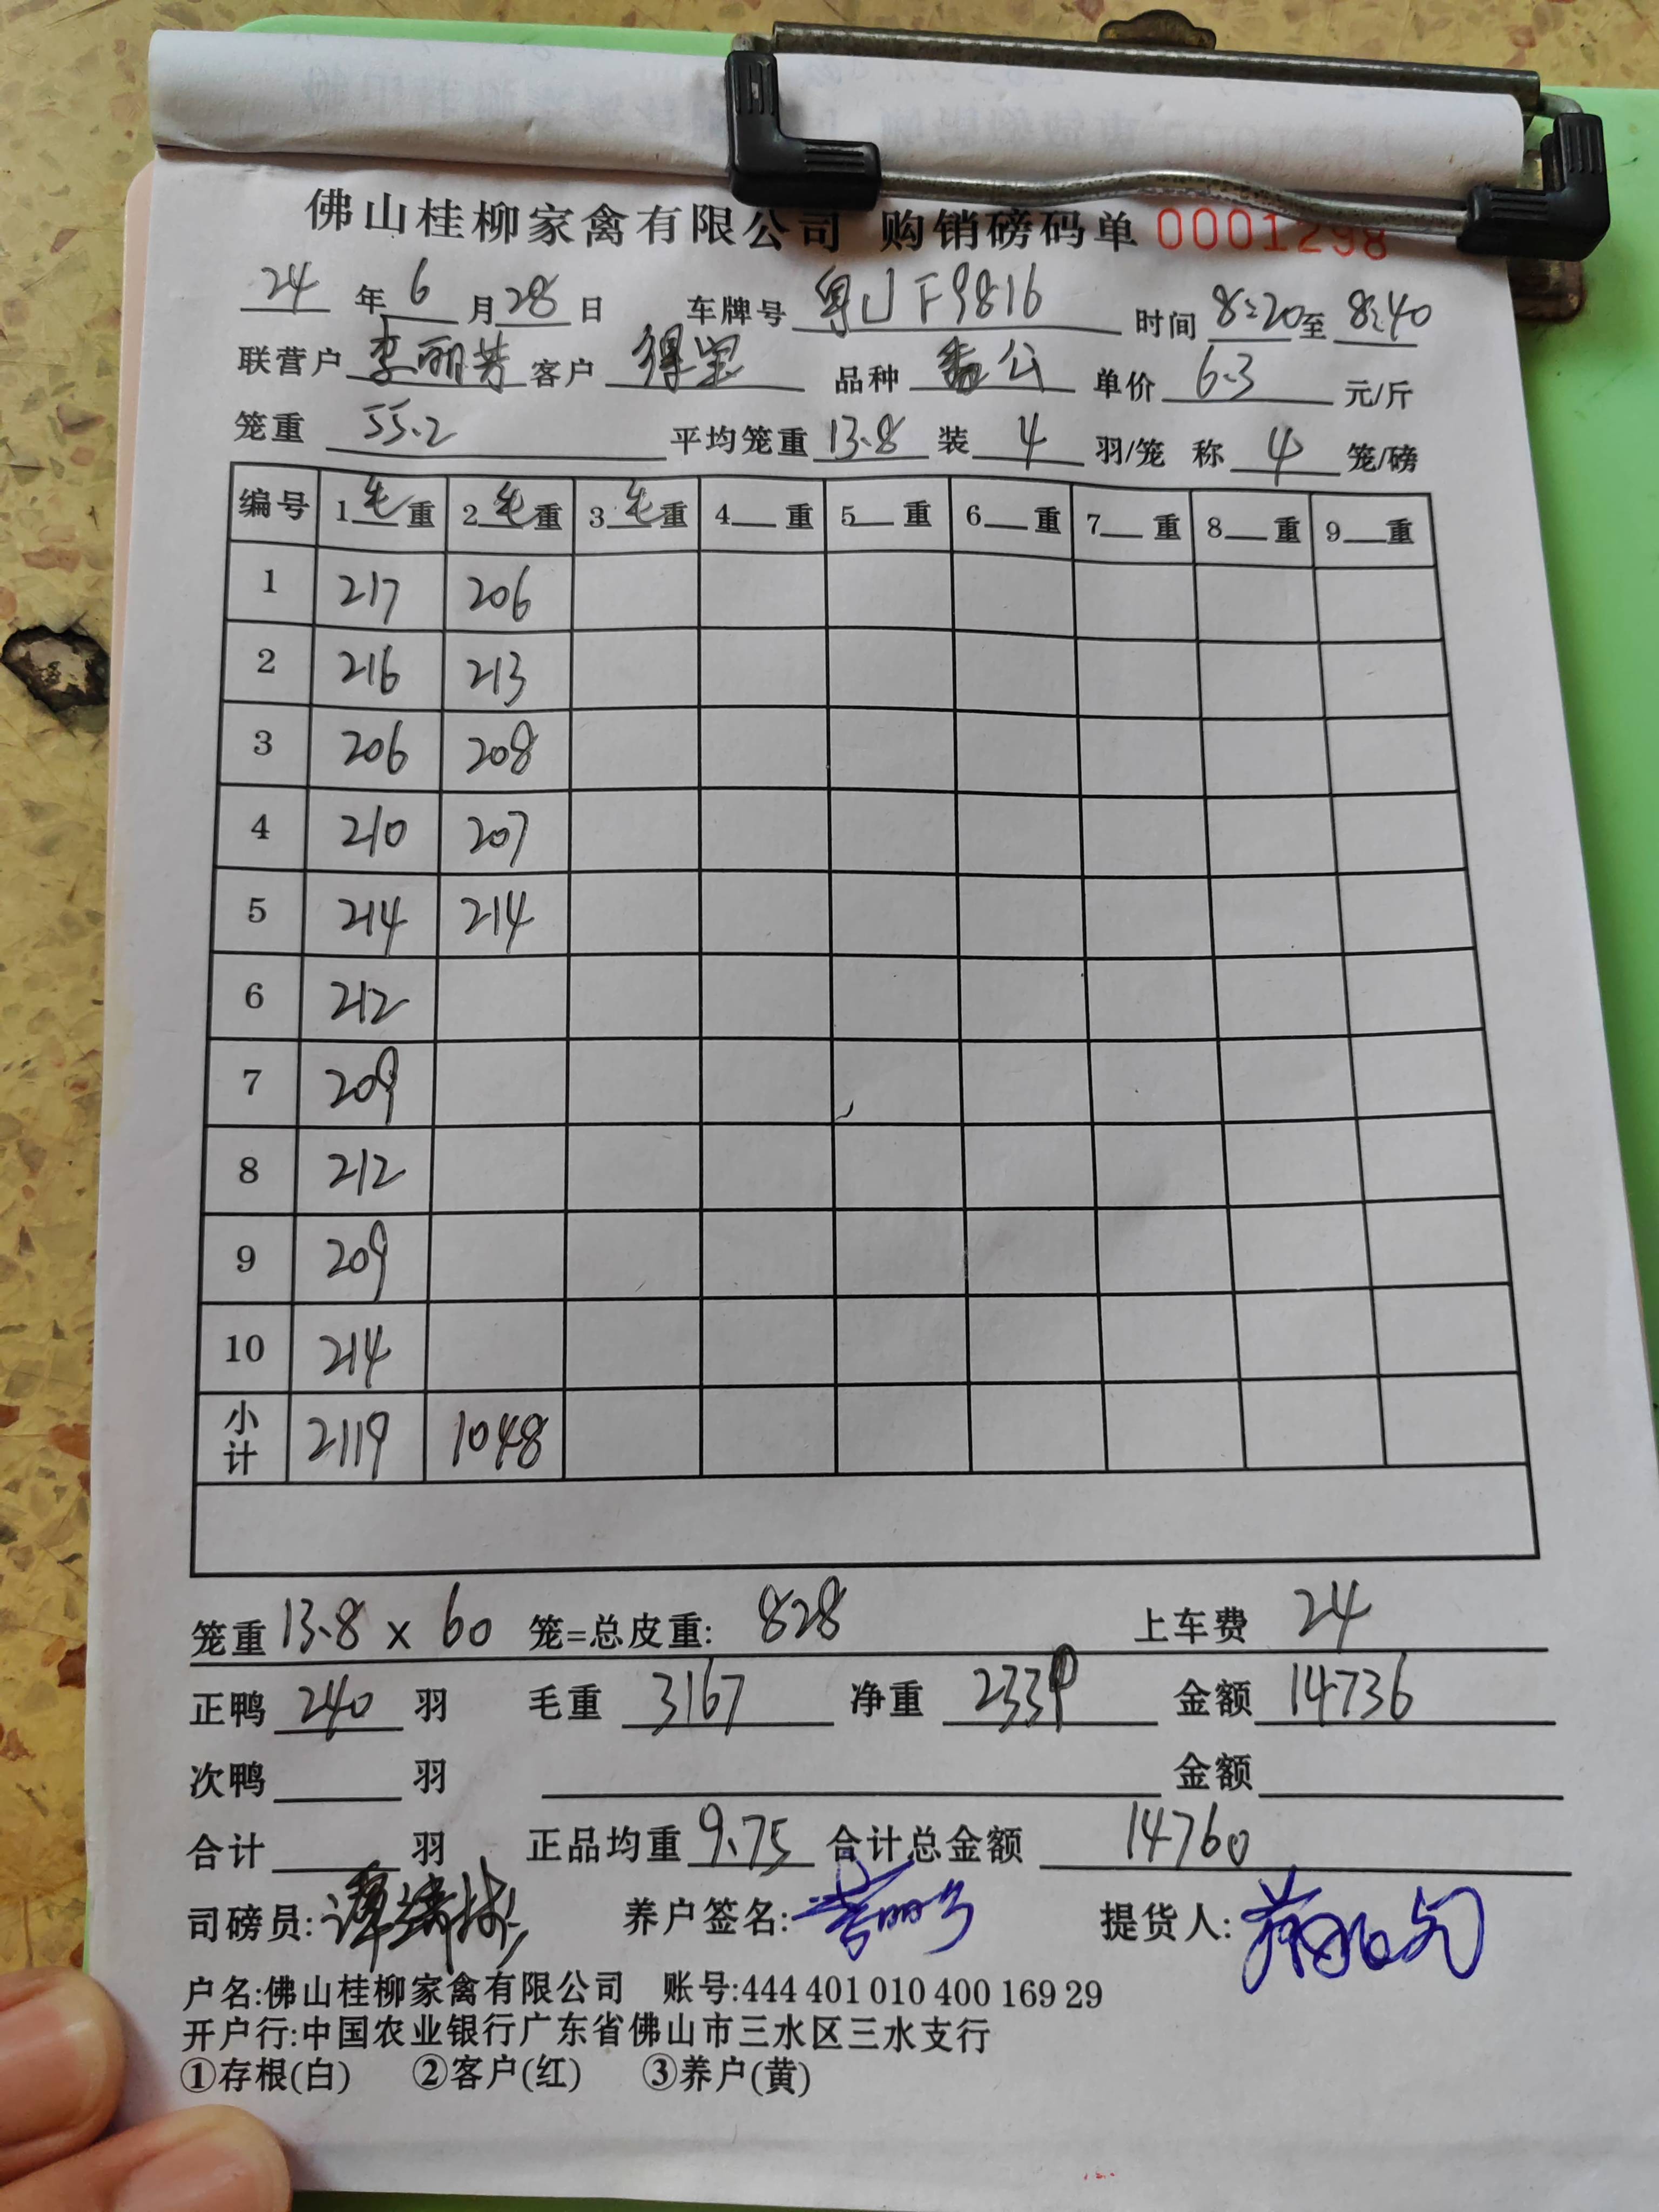 佛山桂柳家禽有限公司 购销磅码单 0001298
24 年 6 月 28 日 车牌号 粤 F9816 时间 8:20 至 8:40
联营户 李丽芳 客户 得宝 品种 公 单价 6.3 元/斤
笼重 55.2 平均笼重 13.8 装 4 羽/笼 称 4 笼/磅
编号 1 毛 重 2 毛 重 3 毛 重 4 重 5 重 6 重 7 重 8 重 9 重
1 217 206
2 216 213
3 206 208
4 210 207
5 214 214
6 212
7 209
8 212
9 209
10 214
小计 2119 1048
笼重 13.8 × 60 笼=总皮重: 828 上车费 24
正鸭 240 羽 毛重 3167 净重 2339 金额 14736
次鸭 羽 金额
合计 羽 正品均重 9.75 合计总金额 14760
司磅员: 养户签名: 提货人:
户名:佛山桂柳家禽有限公司 账号:444 401 010 400 169 29
开户行:中国农业银行广东省佛山市三水区三水支行
①存根(白) ②客户(红) ③养户(黄)